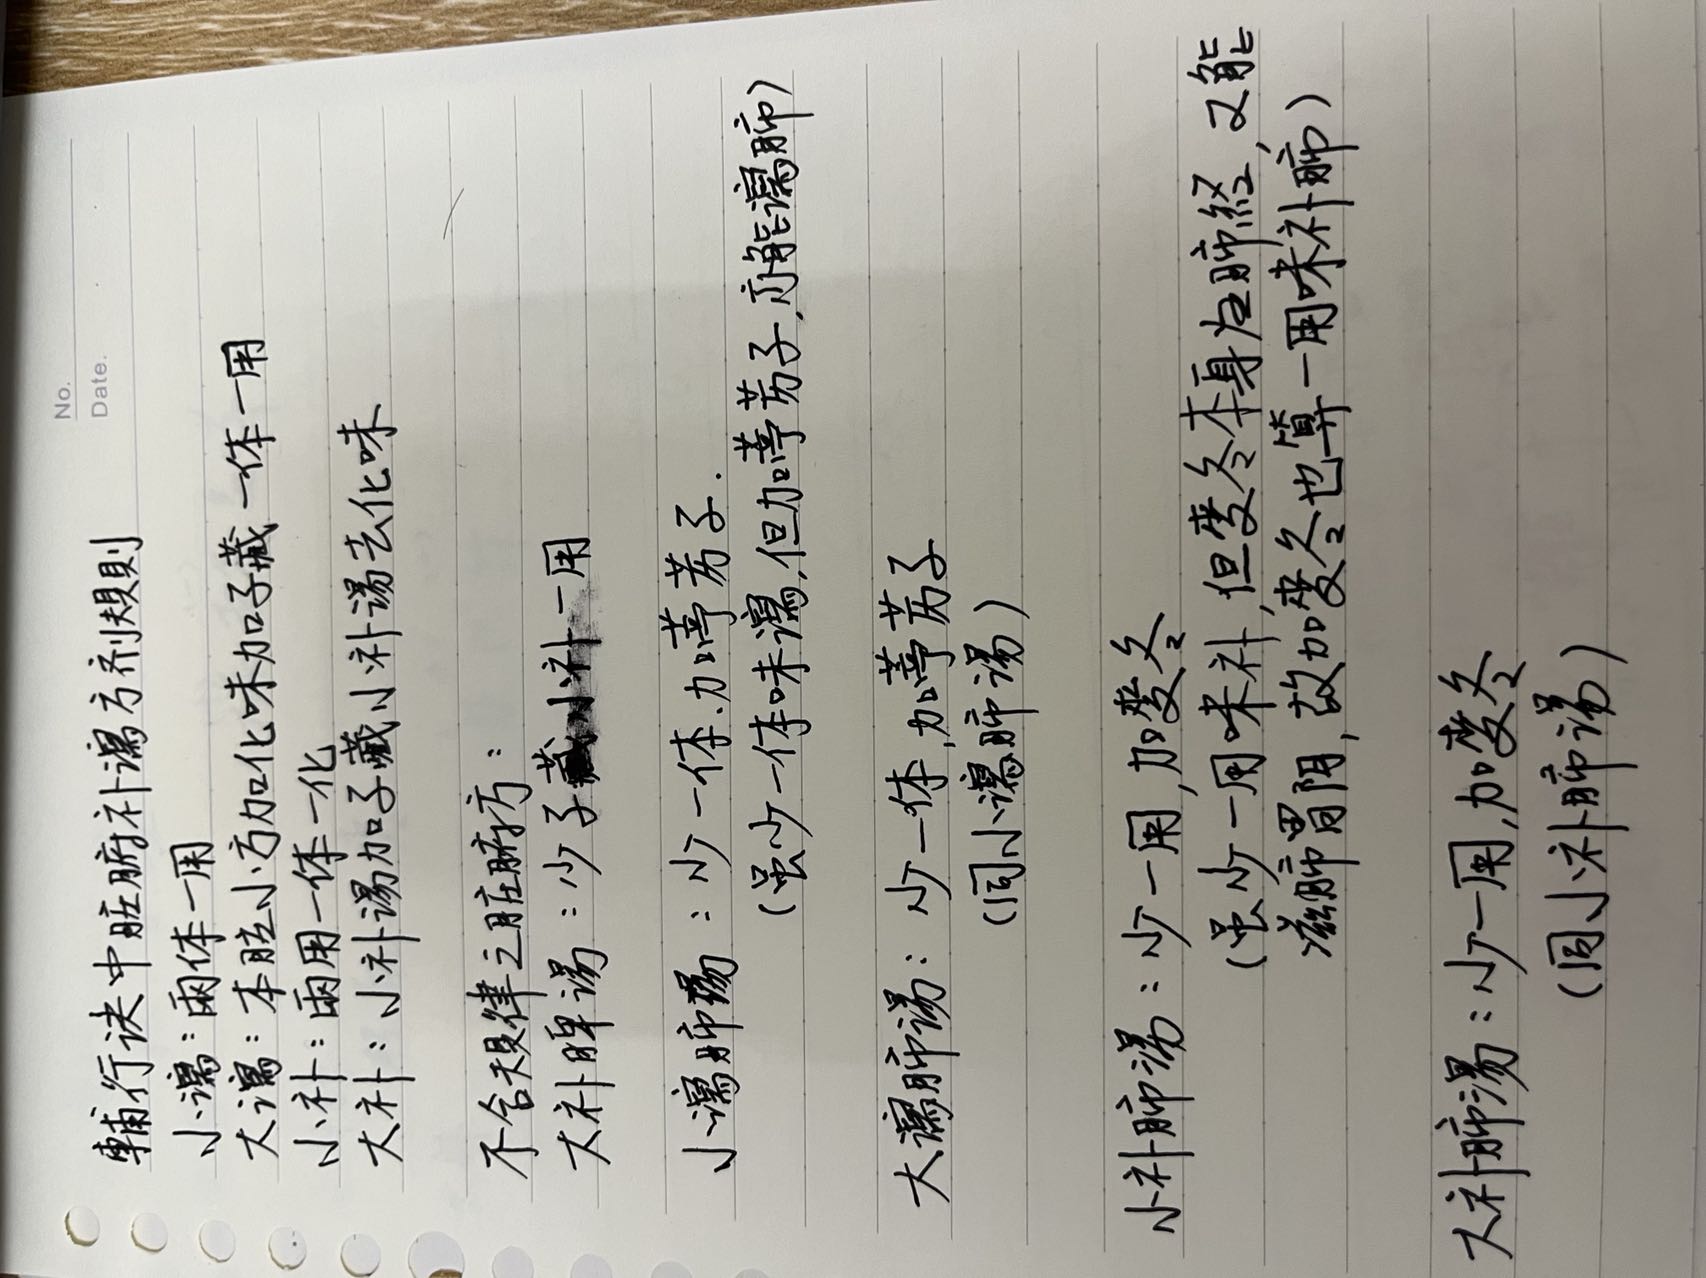 No.
Date.
輔行诀中脏腑补瀉方剂規則
小瀉：兩体一用
大瀉：本脏小方加化味加子藏一体一用
小补：兩用一体一化
大补：小补湯加子藏小补湯去化味
不合規律之脏腑方：
大补脾湯：少子藏小补一用
小瀉肺湯：少一体．加葶苈子．
（虽少一体味瀉，但加葶苈子，亦能瀉肺）
大瀉肺湯：少一体，加葶苈子
（同小瀉肺湯）
小补肺湯：少一用，加麦冬
（虽少一用味补，但麦冬本身在肺経，又能
滋肺胃阴，故加麦冬也算一用味补肺）
大补肺湯：少一用，加麦冬
（同小补肺湯）